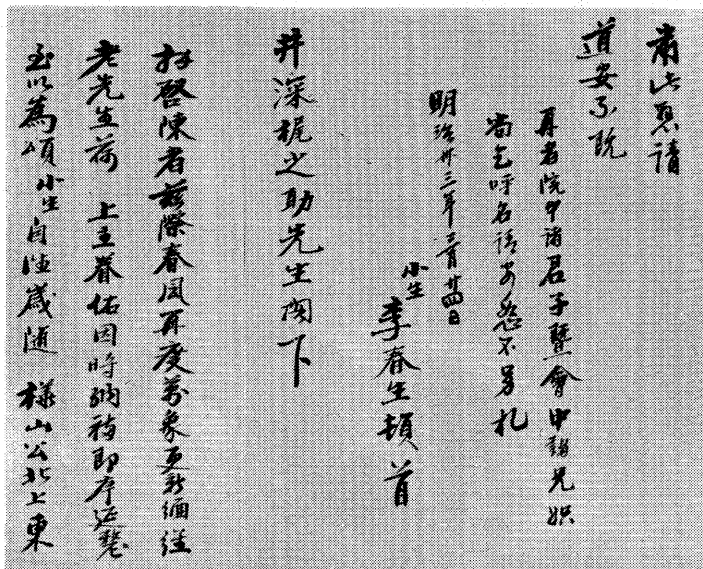 肅此恭請
道安不既
再者院中諸君子暨會中諸兄姐
尚乞呼名請安恕不另札
明治卅三年三月廿四日
小生李春生頓首
井深梶之助先生閣下
拜啓陳者茲際春風再度萬象更新緬維
老先生荷 上主眷佑因時納福即序延釐
至以為頌小生自陸歲隨 樺山公北上東